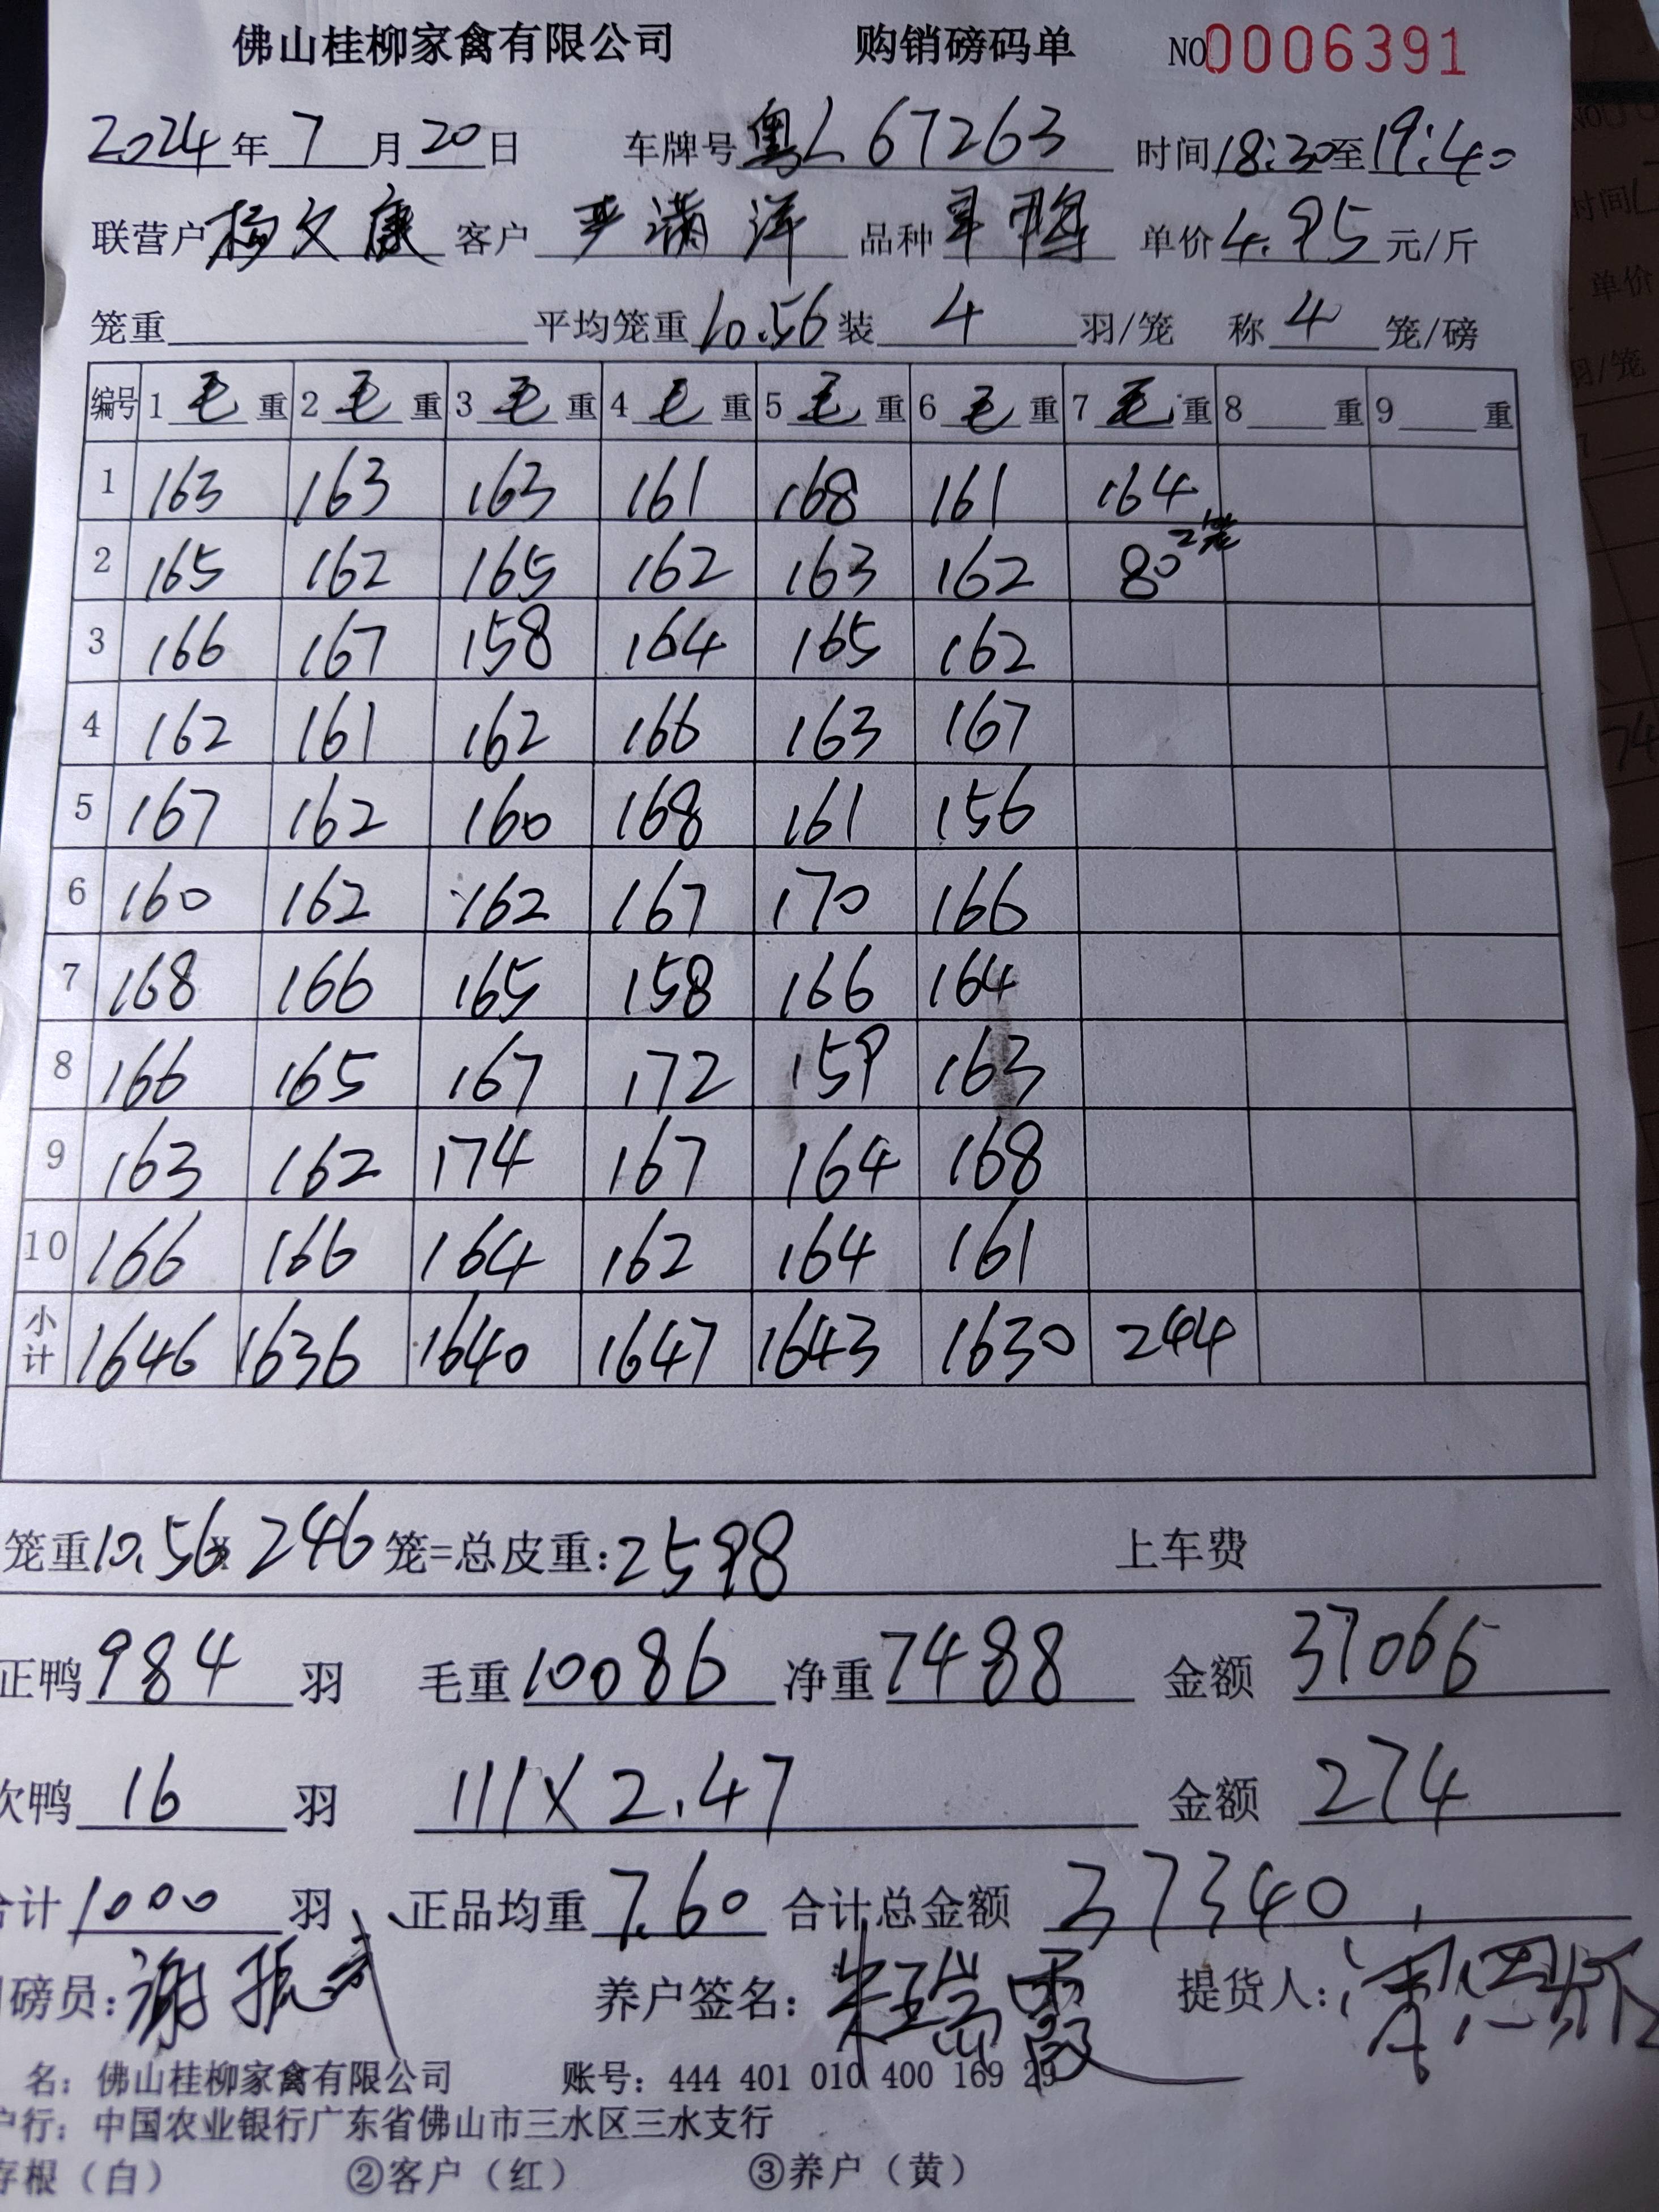 佛山桂柳家禽有限公司 购销磅码单 NO0006391
2024年7月20日 车牌号粤L67263 时间18:30至19:40
联营户杨文康 客户严满洋 品种 单价4.95元/斤
笼重 平均笼重10.56装4羽/笼 称4笼/磅
编号 1毛重 2毛重 3毛重 4毛重 5毛重 6毛重 7毛重 8重 9重
1 163 163 163 161 168 161 164
2 165 162 165 162 163 162 80 2笼
3 166 167 158 164 165 162
4 162 161 162 166 163 167
5 167 162 160 168 161 156
6 160 162 162 167 170 166
7 168 166 165 158 166 164
8 166 165 167 172 159 163
9 163 162 174 167 164 168
10 166 166 164 162 164 161
小计 1646 1636 1640 1647 1643 1630 244
笼重10.56x246笼=总皮重:2598 上车费
正鸭984羽 毛重10086 净重7488 金额37066
次鸭16羽 111X2.47 金额274
合计1000羽 正品均重7.60 合计总金额37340
磅员:谢振 养户签名:朱瑞霞 提货人:
名:佛山桂柳家禽有限公司 账号:444 401 010 400 169 29
户行:中国农业银行广东省佛山市三水区三水支行
存根(白) ②客户(红) ③养户(黄)